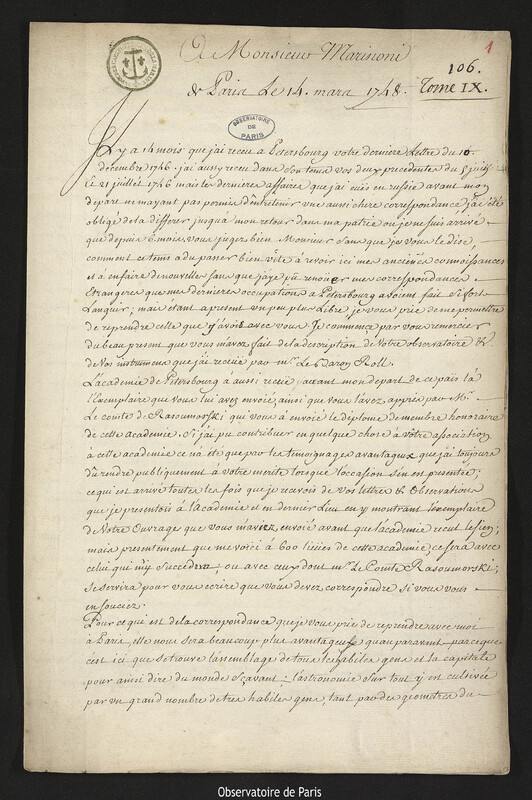 A Monsieur Marinoni
1
106.
de Paris Le 14. mars 1748. Tome IX.
OBSERVATOIRE DE PARIS
Il y a 14 mois que j'ai receu a Petersbourg votre derniere Lettre du 10
decembre 1746. j'ai aussy receu dans son tems vos deux precedentes du 5 juill
et 21 juillet 1746 mais les dernieres affaires que j'ai eües en russie avant mon
depart ne m'ayant pas permis d'entretenir une aussi chere correspondance j'ai été
obligé de la differer jusqu'à mon retour dans ma patrie où je ne suis arrivé
que depuis 6 mois. vous jugez bien Monsieur sans que je vous le dise,
comment ce tems a du passer bien vite à revoir ici mes anciennes connoissances
et à en faire de nouvelles sans que j'aye pû renouer mes correspondances
Etrangeres que mes dernieres occupations a Petersbourg avoient fait si fort
Languir; mais etant a present un peu plus Libre, je vous prie de me permettre
de reprendre celle que j'avois avec vous. Je commence par vous remercier
du beau present que vous m'avez fait de la description de Votre observatoire &
de Vos instrumens que j'ai receüe par Mr. Le Baron Roll.
L'academie de Petersbourg à aussi receüe, avant mon depart de ce païs là
l'Exemplaire que vous lui avez envoié, ainsi que vous l'avez appris par Mr.
Le comte de Rasoumofski qui vous à envoié le diplome de membre honoraire
de cette academie. Si j'ai pu contribuer en quelque chose à Votre association
à cette academie ce n'a été que par les temoignages avantageux que j'ai toujours
du rendre publiquement à votre merite lorsque l'occassion s'in est presentée;
ce qui est arrivé toutes les fois que je recevois de vos lettres & Observations
que je presentois à l'academie et en dernier Lieu en y montrant l'exemplaire
de Votre Ouvrage que vous m'aviez envoié avant que l'academie recut le sien;
mais presentement que me voici à 600 lieües de cette academie, ce sera avec
celui qui m'y succedera ou avec ceux dont Mr. Le Comte Rasoumofski
se servira pour vous ecrire que vous devez correspondre si vous vous
en souciez.
Pour ce qui est de la correspondance que je vous prie de reprendre avec moi
à Paris, elle nous sera beaucoup plus avantageuse qu'auparavant parceque
c'est ici que se trouve l'assemblage de tous les habiles gens et la capitale
pour ainsi dire du monde sçavant: l'astronomie sur tout y est cultivée
par un grand nombre de tres habiles gens, tant par des geometres du
Observatoire de Paris